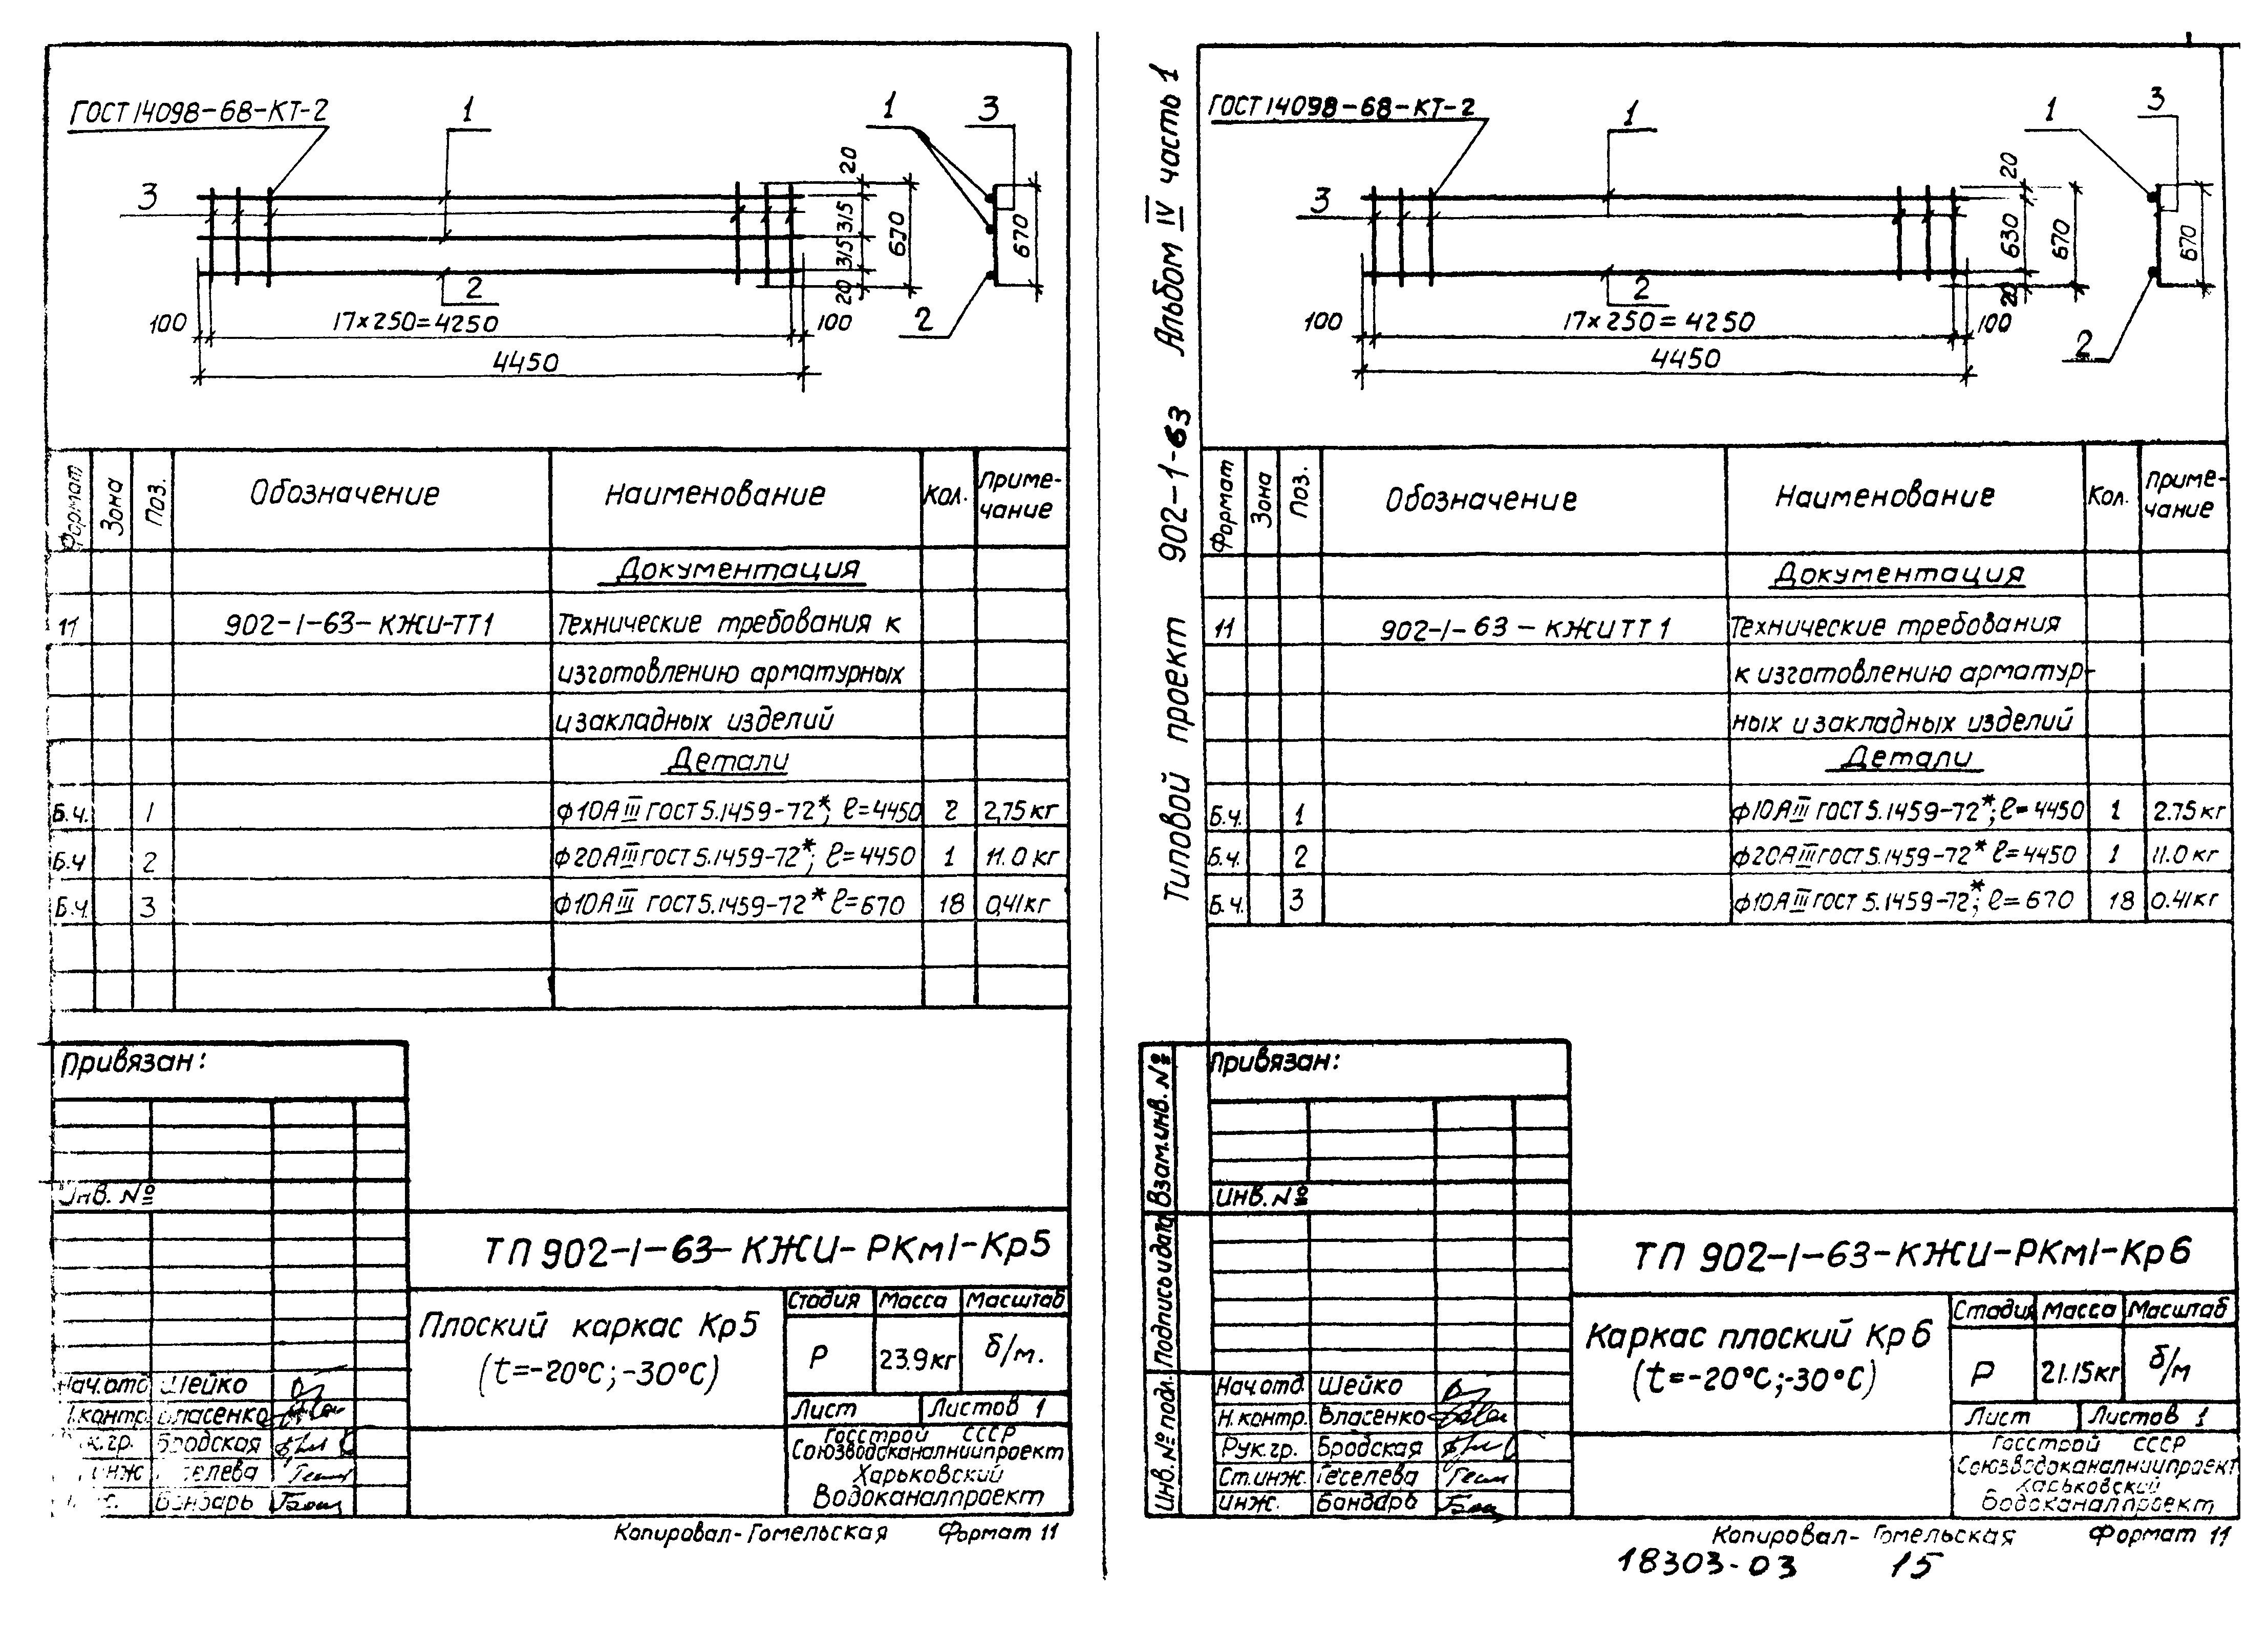 ГОСТ 14098-68-КТ-2
1
1
3
3
20
315
315
20
670
670
2
2
100
17×250=4250
100
4450
Формат
Зона
Поз.
Обозначение
Наименование
Кол.
Приме-
чание
Документация
11 902-1-63-КЖИ-ТТ1 Технические требования к
изготовлению арматурных
и закладных изделий
Детали
Б.ч. 1 ф10АIII ГОСТ 5.1459-72*; ℓ=4450 2 2,75 кг
Б.ч 2 ф20АIII ГОСТ 5.1459-72*; ℓ=4450 1 11.0 кг
Б.ч. 3 ф10АIII ГОСТ 5.1459-72* ℓ=670 18 0,41кг
Привязан:
Инв. №
ТП 902-1-63-КЖИ-РКм1-Кр5
Плоский каркас Кр5
(t=-20°С;-30°С)
Стадия Масса Масштаб
Р 23.9кг б/м.
Лист Листов 1
Нач.отд Шейко
Н.контр. Власенко
Рук.гр. Бродская
Ст.инж. Геселева
Бондарь
Госстрой СССР
Союзводоканалниипроект
Харьковский
Водоканалпроект
Копировал-Гомельская Формат 11
Типовой проект 902-1-63 Альбом IV часть 1
ГОСТ 14098-68-КТ-2
1
1
3
3
20
630
20
670
670
2
2
100
17×250=4250
100
4450
Формат
Зона
Поз.
Обозначение
Наименование
Кол.
Приме-
чание
Документация
11 902-1-63-КЖИ ТТ1 Технические требования
к изготовлению арматур-
ных и закладных изделий
Детали
Б.ч. 1 ф10АIII ГОСТ 5.1459-72*; ℓ=4450 1 2.75 кг
Б.ч. 2 ф20АIII ГОСТ 5.1459-72* ℓ=4450 1 11.0 кг
Б.ч. 3 ф10АIII ГОСТ 5.1459-72*; ℓ=670 18 0.41кг
Взам.инв.№
Подпись и дата
Инв.№ подл.
Привязан:
Инв.№
ТП 902-1-63-КЖИ-РКм1-Кр6
Каркас плоский Кр6
(t=-20°С;-30°С)
Стадия Масса Масштаб
Р 21.15кг б/м
Лист Листов 1
Нач.отд. Шейко
Н.контр. Власенко
Рук.гр. Бродская
Ст.инж. Геселева
Инж. Бондарь
Госстрой СССР
Союзводоканалниипроект
Харьковский
Водоканалпроект
Копировал- Гомельская Формат 11
18303-03 15